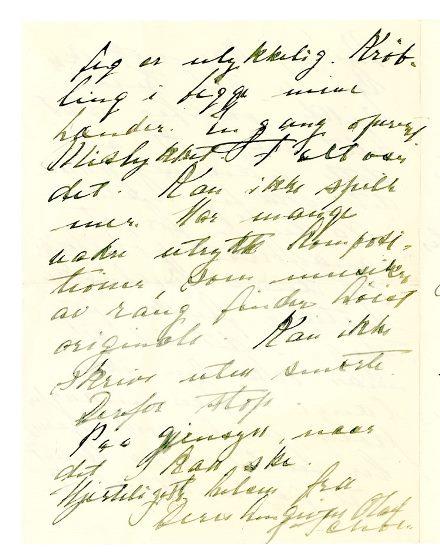 Jeg er ulykkelig. Kröb-
ling i begge mine
hænder. En gang operert
Mislykket I alt var
det. Kan ikke spelle
mer. Har mange
vakre utrykte Komposi-
tioner, som musikere
av rang finder höist
originale. Kan ikke
skrive uten smerte.
Derfor stop.
Paa gjensyn, naar
det kan ske.
Hjerteligste hilsen fra
Deres hengivne Olaf